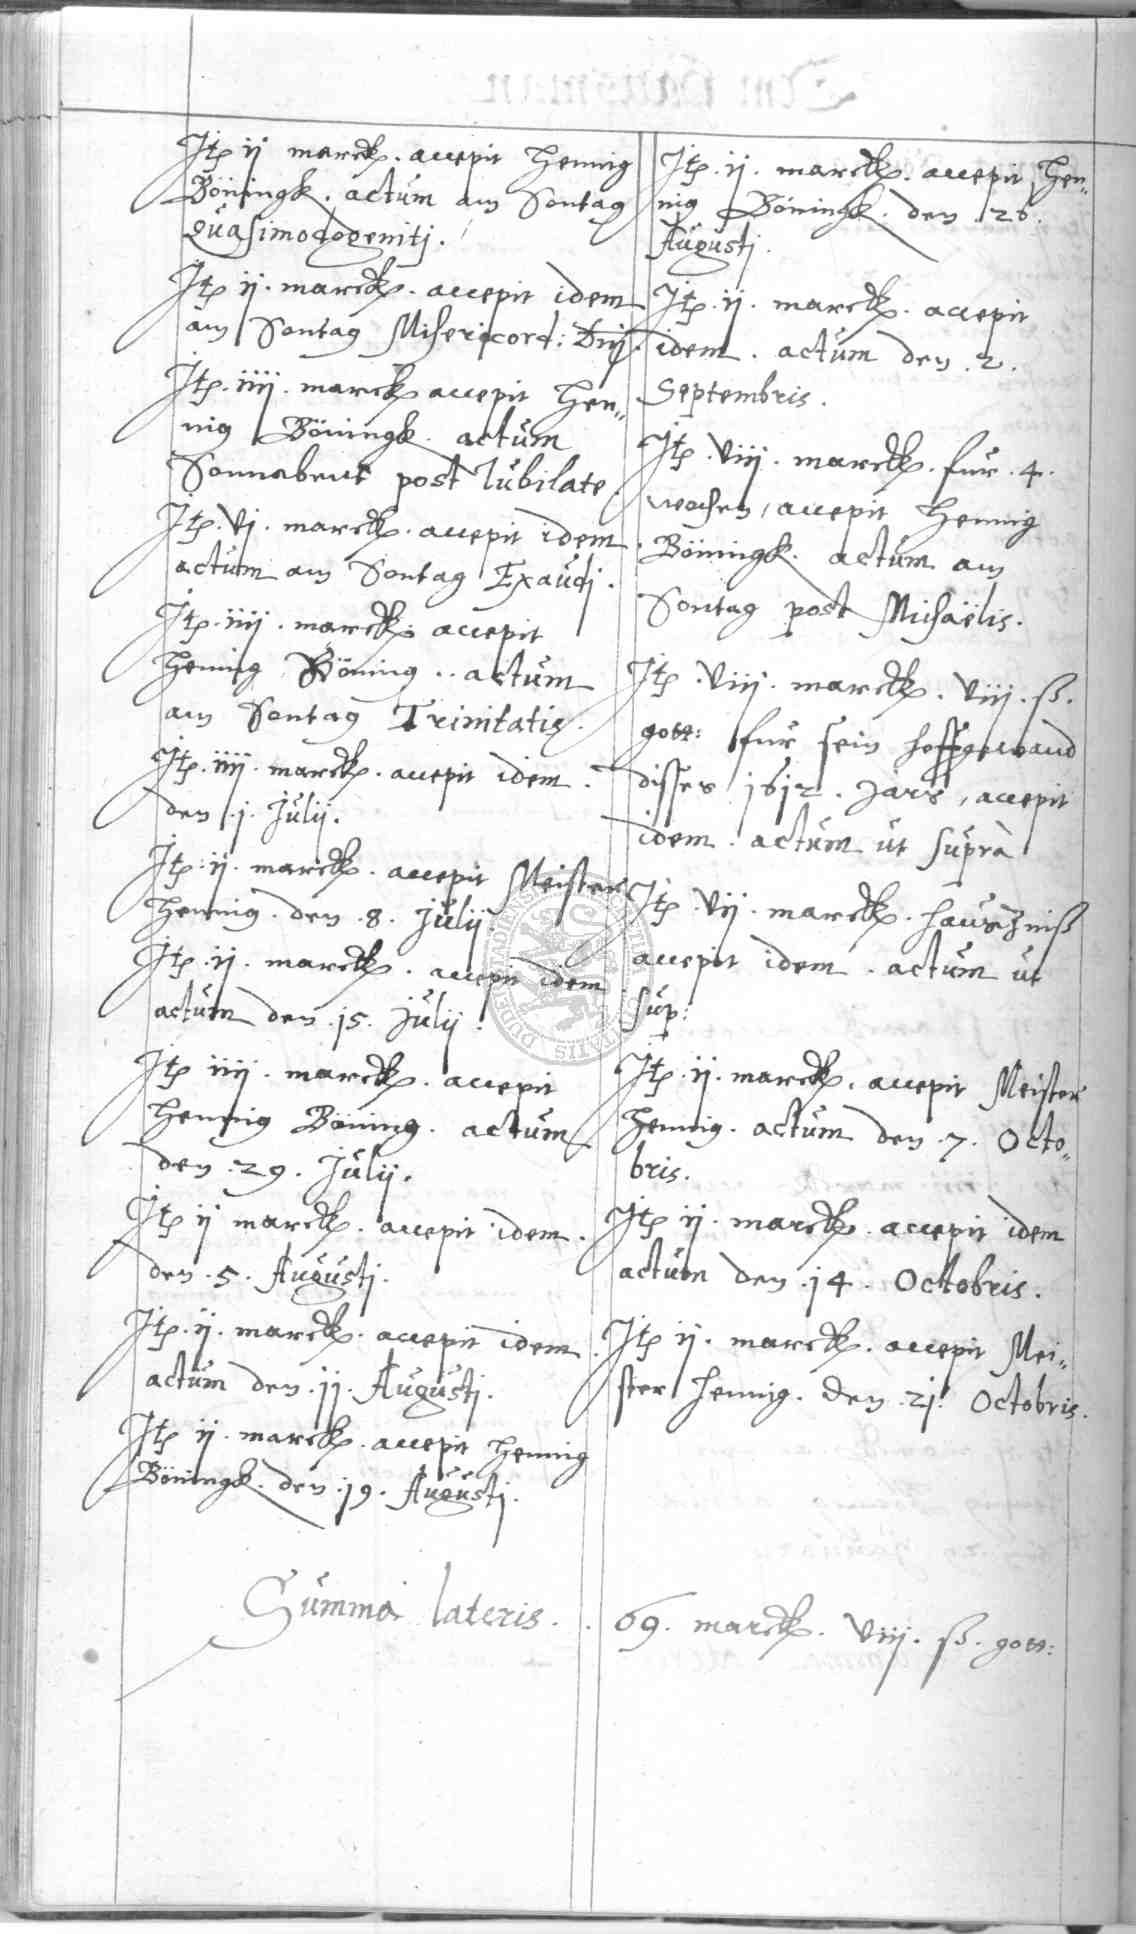 Itp ij marck. accepit Hennig
Böningk. actum am Sontag
Quasimodogenitj.
Itp ij. marck. accepit idem
am Sontag Misericord: Dnj.
Itp. iiij. marck accepit Hen„
nig Böningk. actum
Sonnabent post Iubilate.
Itp. vj. marck. accepit idem
actum am Sontag Exaudj.
Itp. iiij. marck. accepit
Hennig Böning. actum
am Sontag Trinitatis.
Itp. iiij. marck. accepit idem.
den .j. Julij.
Itp. ij. marck. accepit Meister
Hennig. den .8. Julij.
Itp. ij. marck. accepit idem
actum den .j5. Julij.
Itp iiij. marck. accepit
Hennig Böning. actum
den .29. Julij.
Itp ij marck. accepit idem.
den .5. Augustj.
Itp. ij. marck. accepit idem.
actum den .jj. Augustj.
Itp ij. marck. accepit Hennig
Böningk. den .j9. Augustj.
Itp. ij. marck. accepit Hen„
nig Böningk. den 26.
Augustj.
Itp. ij. marck. accepit
idem. actum den .2.
Septembris.
Itp. viij. marck. fur .4.
wochen, accepit Hennig
Böningk. actum am
Sontag post Michaëlis.
Itp. viij. marck. viij. ß.
gott: fur sein hoffgewand
disses j6j2. Jars, accepit
idem. actum ut suprà
Itp. vij. marck. hauszinß
accepit idem. actum ut
sup:
Itp. ij. marck. accepit Meister
Hennig. actum den .7. Octo„
bris.
Itp ij. marck. accepit idem
actum den .j4. Octobris.
Itp ij. marck. accepit Mei„
ster Hennig. den .2j. Octobris.
Summa lateris. . 69. marck. viij. ß. gott: